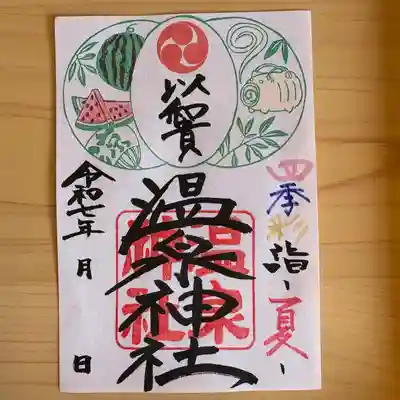 四季彩詣~夏~
以賀
温泉神社
温泉神社
令和七年 月 日